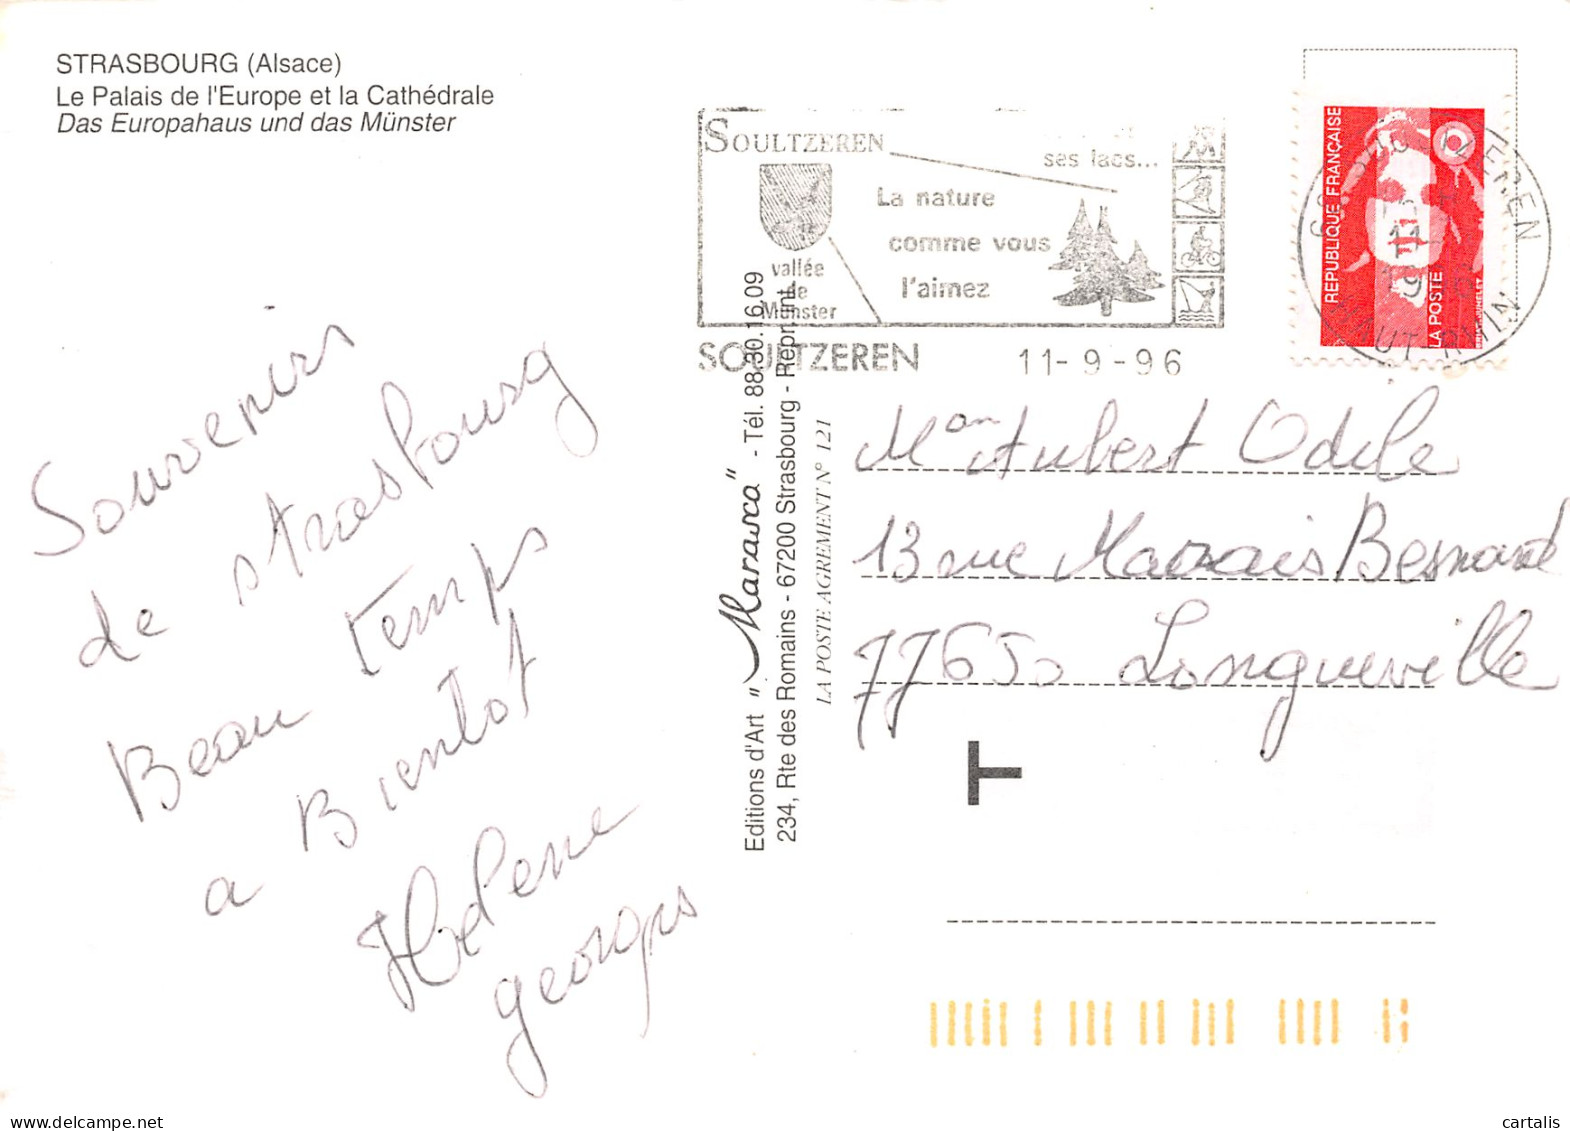 STRASBOURG (Alsace)
Le Palais de l'Europe et la Cathédrale
Das Europahaus und das Münster
SOULTZEREN
ses lacs...
La nature
comme vous
l'aimez
vallée
de
Munster
SOULTZEREN 11-9-96
REPUBLIQUE FRANÇAISE
LA POSTE
HAUT-RHIN
Souvenirs
de strasbourg
Beau temps
a Bientot
Hélène
georges
Editions d'Art "Marasca" - Tél. 88.30.16.09
234, Rte des Romains - 67200 Strasbourg - Repr. Int.
LA POSTE AGREMENT N° 121
Mme Aubert Odile
13 rue Marais Besnard
77650 Longueville
T
cartalis